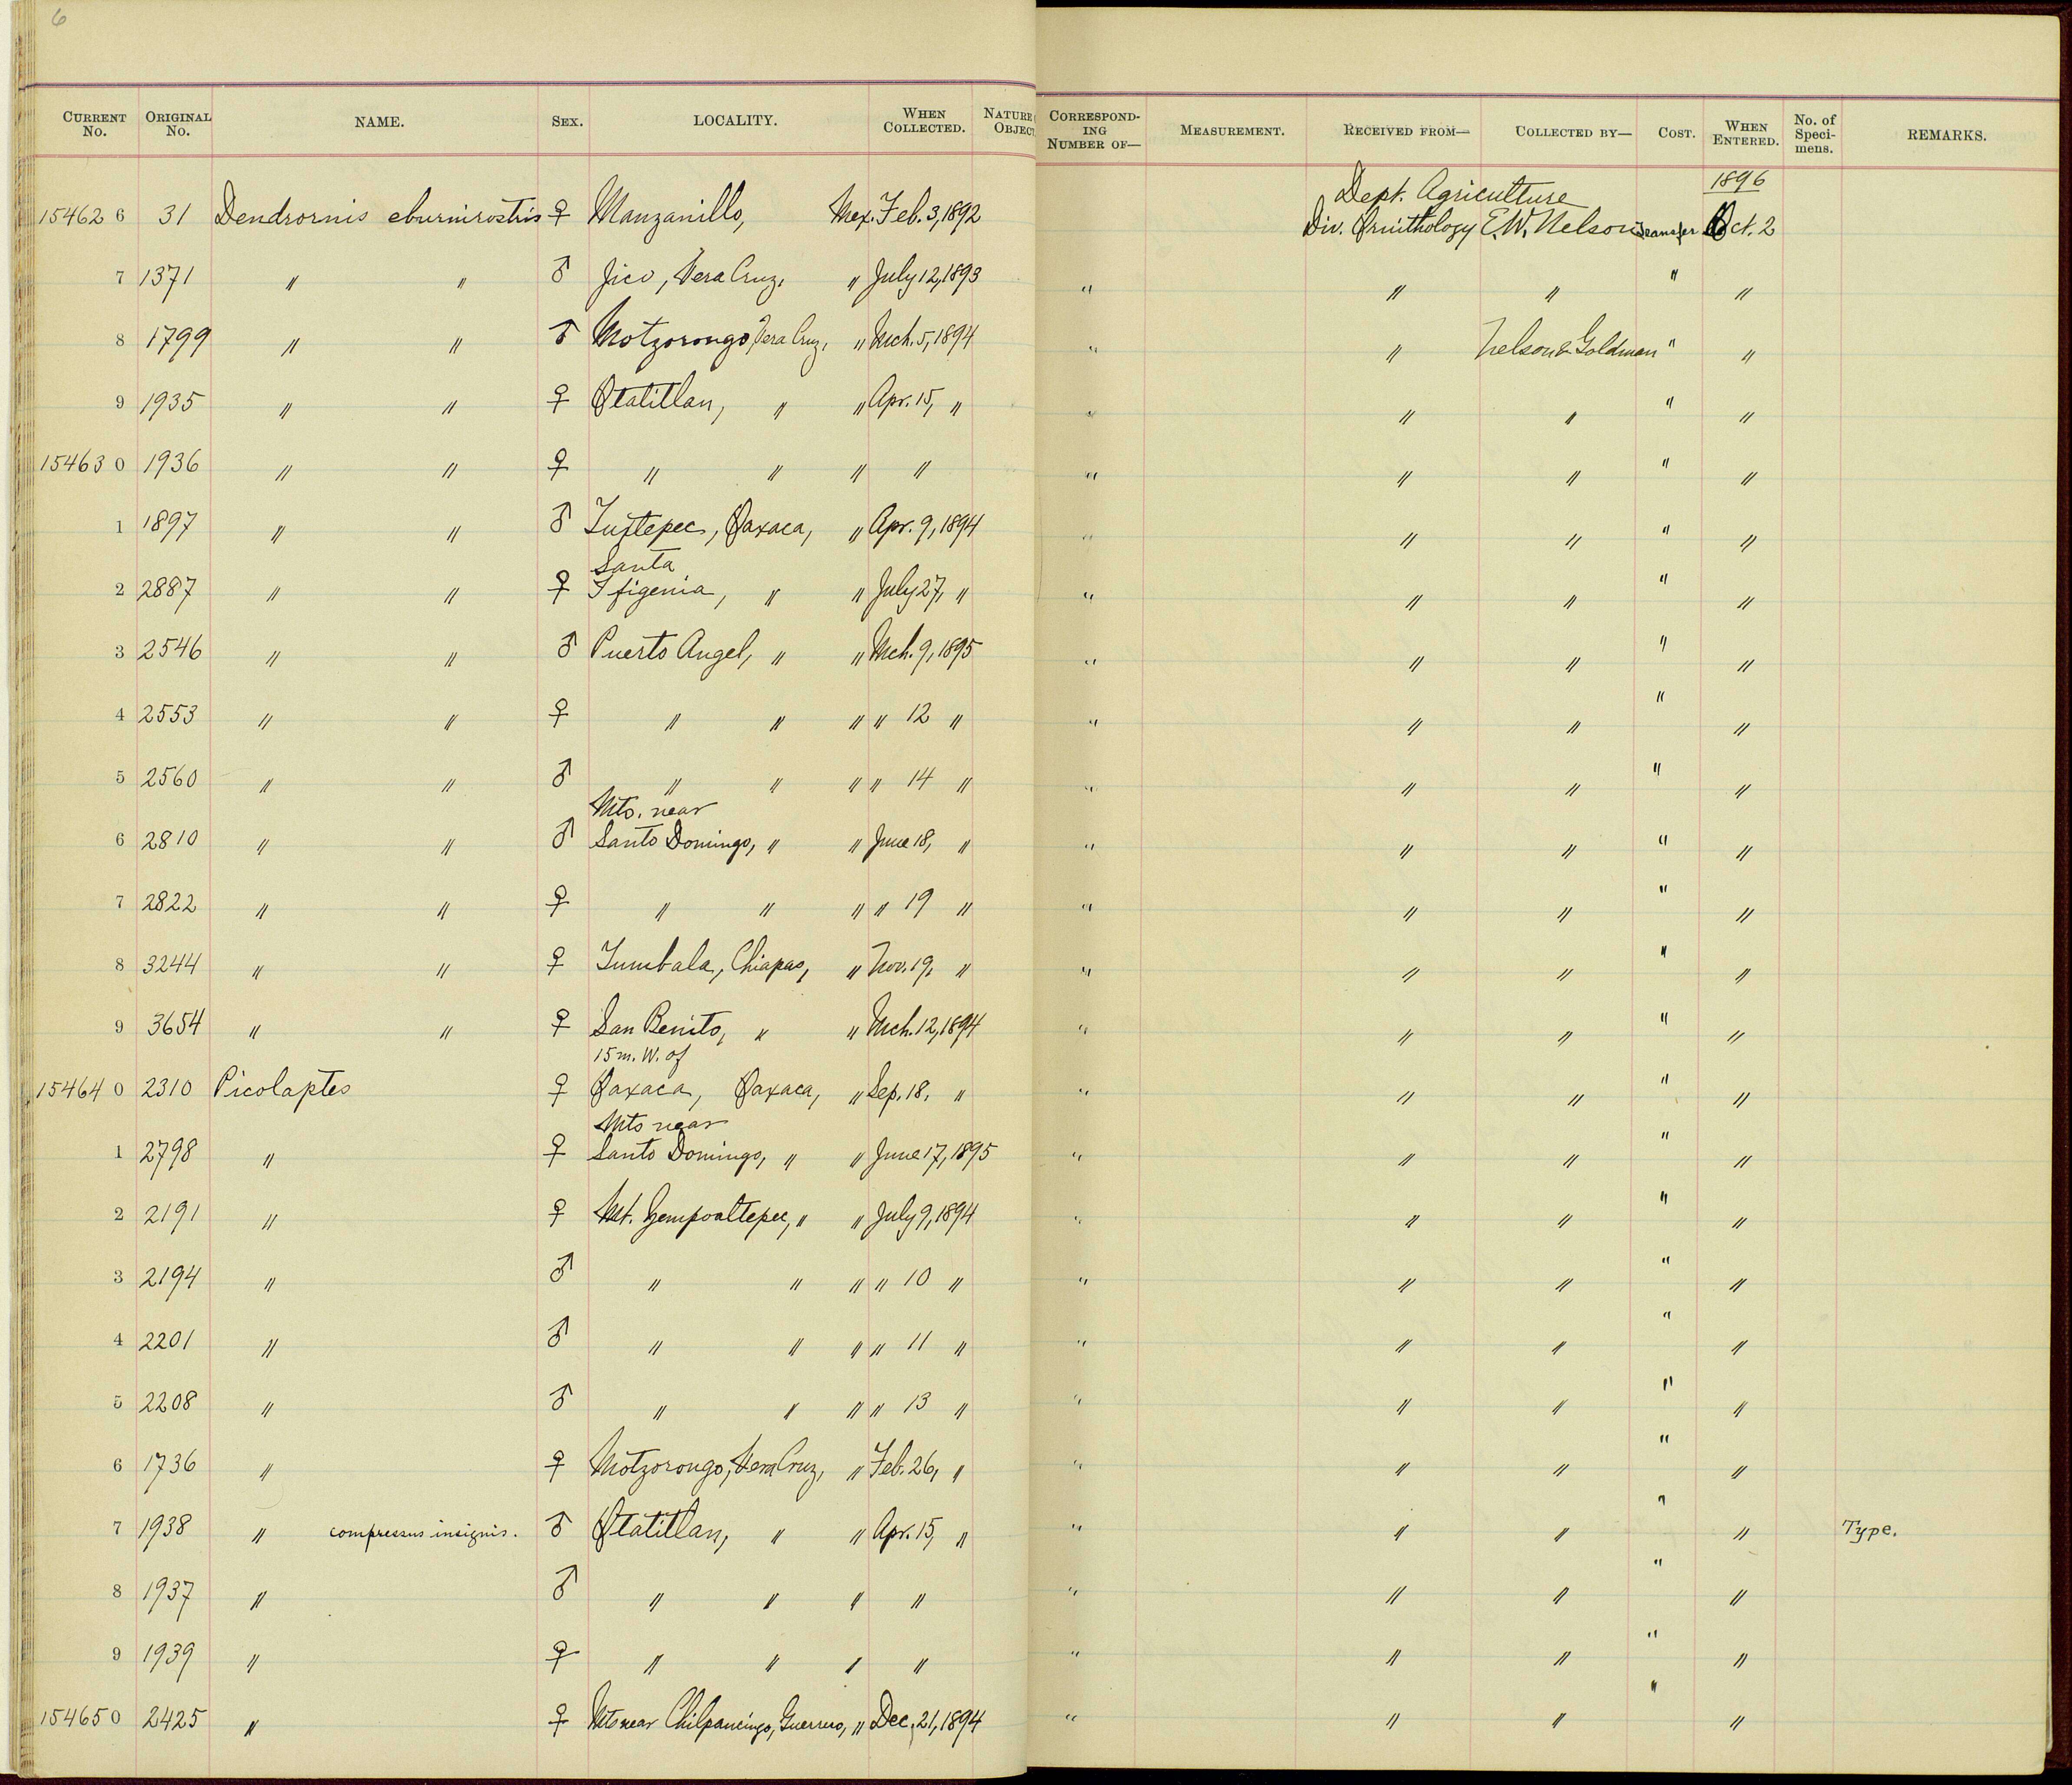 6
CURRENT No. ORIGINAL No. NAME. SEX. LOCALITY. WHEN COLLECTED. NATURE OBJECT CORRESPONDING NUMBER OF— MEASUREMENT. RECEIVED FROM— COLLECTED BY— COST. WHEN ENTERED. No. of Specimens. REMARKS.
Dept. Agriculture 1896
154626 31 Dendrornis eburnirostris ♀ Manzanillo, Mex. Feb. 3, 1892 Div. Ornithology E.W. Nelson Transfer Oct. 2
7 1371 " " ♂ Jico, Vera Cruz, " July 12, 1893 " " " " "
8 1799 " " ♂ Motzorongo, Vera Cruz, " Mch. 5, 1894 " " Nelson & Goldman " "
9 1935 " " ♀ Otatitlan, " " Apr. 15, " " " " " "
154630 1936 " " ♀ " " " " " " " " "
1 1897 " " ♂ Tuxtepec, Oaxaca, " Apr. 9, 1894 " " " " "
Santa
2 2887 " " ♀ Ifigenia, " " July 27, " " " " " "
3 2546 " " ♂ Puerto Angel, " " Mch. 9, 1895 " " " " "
4 2553 " " ♀ " " " " 12 " " " " " "
5 2560 " " ♂ " " " " 14 " " " " " "
Mts. near
6 2810 " " ♂ Santo Domingo, " " June 18, " " " " " "
7 2822 " " ♀ " " " " 19 " " " " " "
8 3244 " " ♀ Tumbala, Chiapas, " Nov. 19, " " " " " "
9 3654 " " ♀ San Benito, " " Mch. 12, 1894 " " " " "
15 m. W. of
154640 2310 Picolaptes ♀ Oaxaca, Oaxaca, " Sep. 18, " " " " " "
Mts near
1 2798 " ♀ Santo Domingo, " " June 17, 1895 " " " " "
2 2191 " ♀ Mt. Zempoaltepec, " " July 9, 1894 " " " " "
3 2194 " ♂ " " " " 10 " " " " " "
4 2201 " ♂ " " " " 11 " " " " " "
5 2208 " ♂ " " " " 13 " " " " " "
6 1736 " ♀ Motzorongo, Vera Cruz, " Feb. 26, " " " " " "
7 1938 " compressus insignis. ♂ Otatitlan, " " Apr. 15, " " " " " " Type.
8 1937 " ♂ " " " " " " " " "
9 1939 " ♀ " " " " " " " " "
154650 2425 " ♀ Mts near Chilpancingo, Guerrero, " Dec. 21, 1894 " " " " "